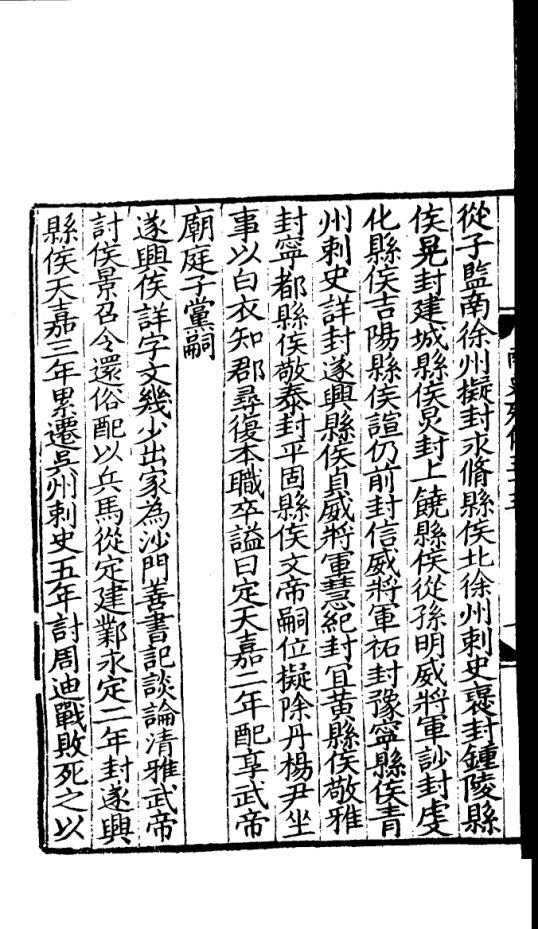 從子監南徐州擬封永脩縣侯北徐州刺史襃封鍾陵縣
侯晃封建城縣侯炅封上饒縣侯從孫明威將軍訬封虔
化縣侯吉陽縣侯諠仍前封信威將軍祏封豫寧縣侯青
州刺史詳封遂興縣侯貞威將軍慧紀封宜黃縣侯敬雅
封寧都縣侯敬泰封平固縣侯文帝嗣位擬除丹楊尹坐
事以白衣知郡尋復本職卒謚曰定天嘉二年配享武帝
廟庭子黨嗣
遂興侯詳字文幾少出家為沙門善書記談論清雅武帝
討侯景召令還俗配以兵馬從定建鄴永定二年封遂興
縣侯天嘉三年累遷吳州刺史五年討周迪戰敗死之以